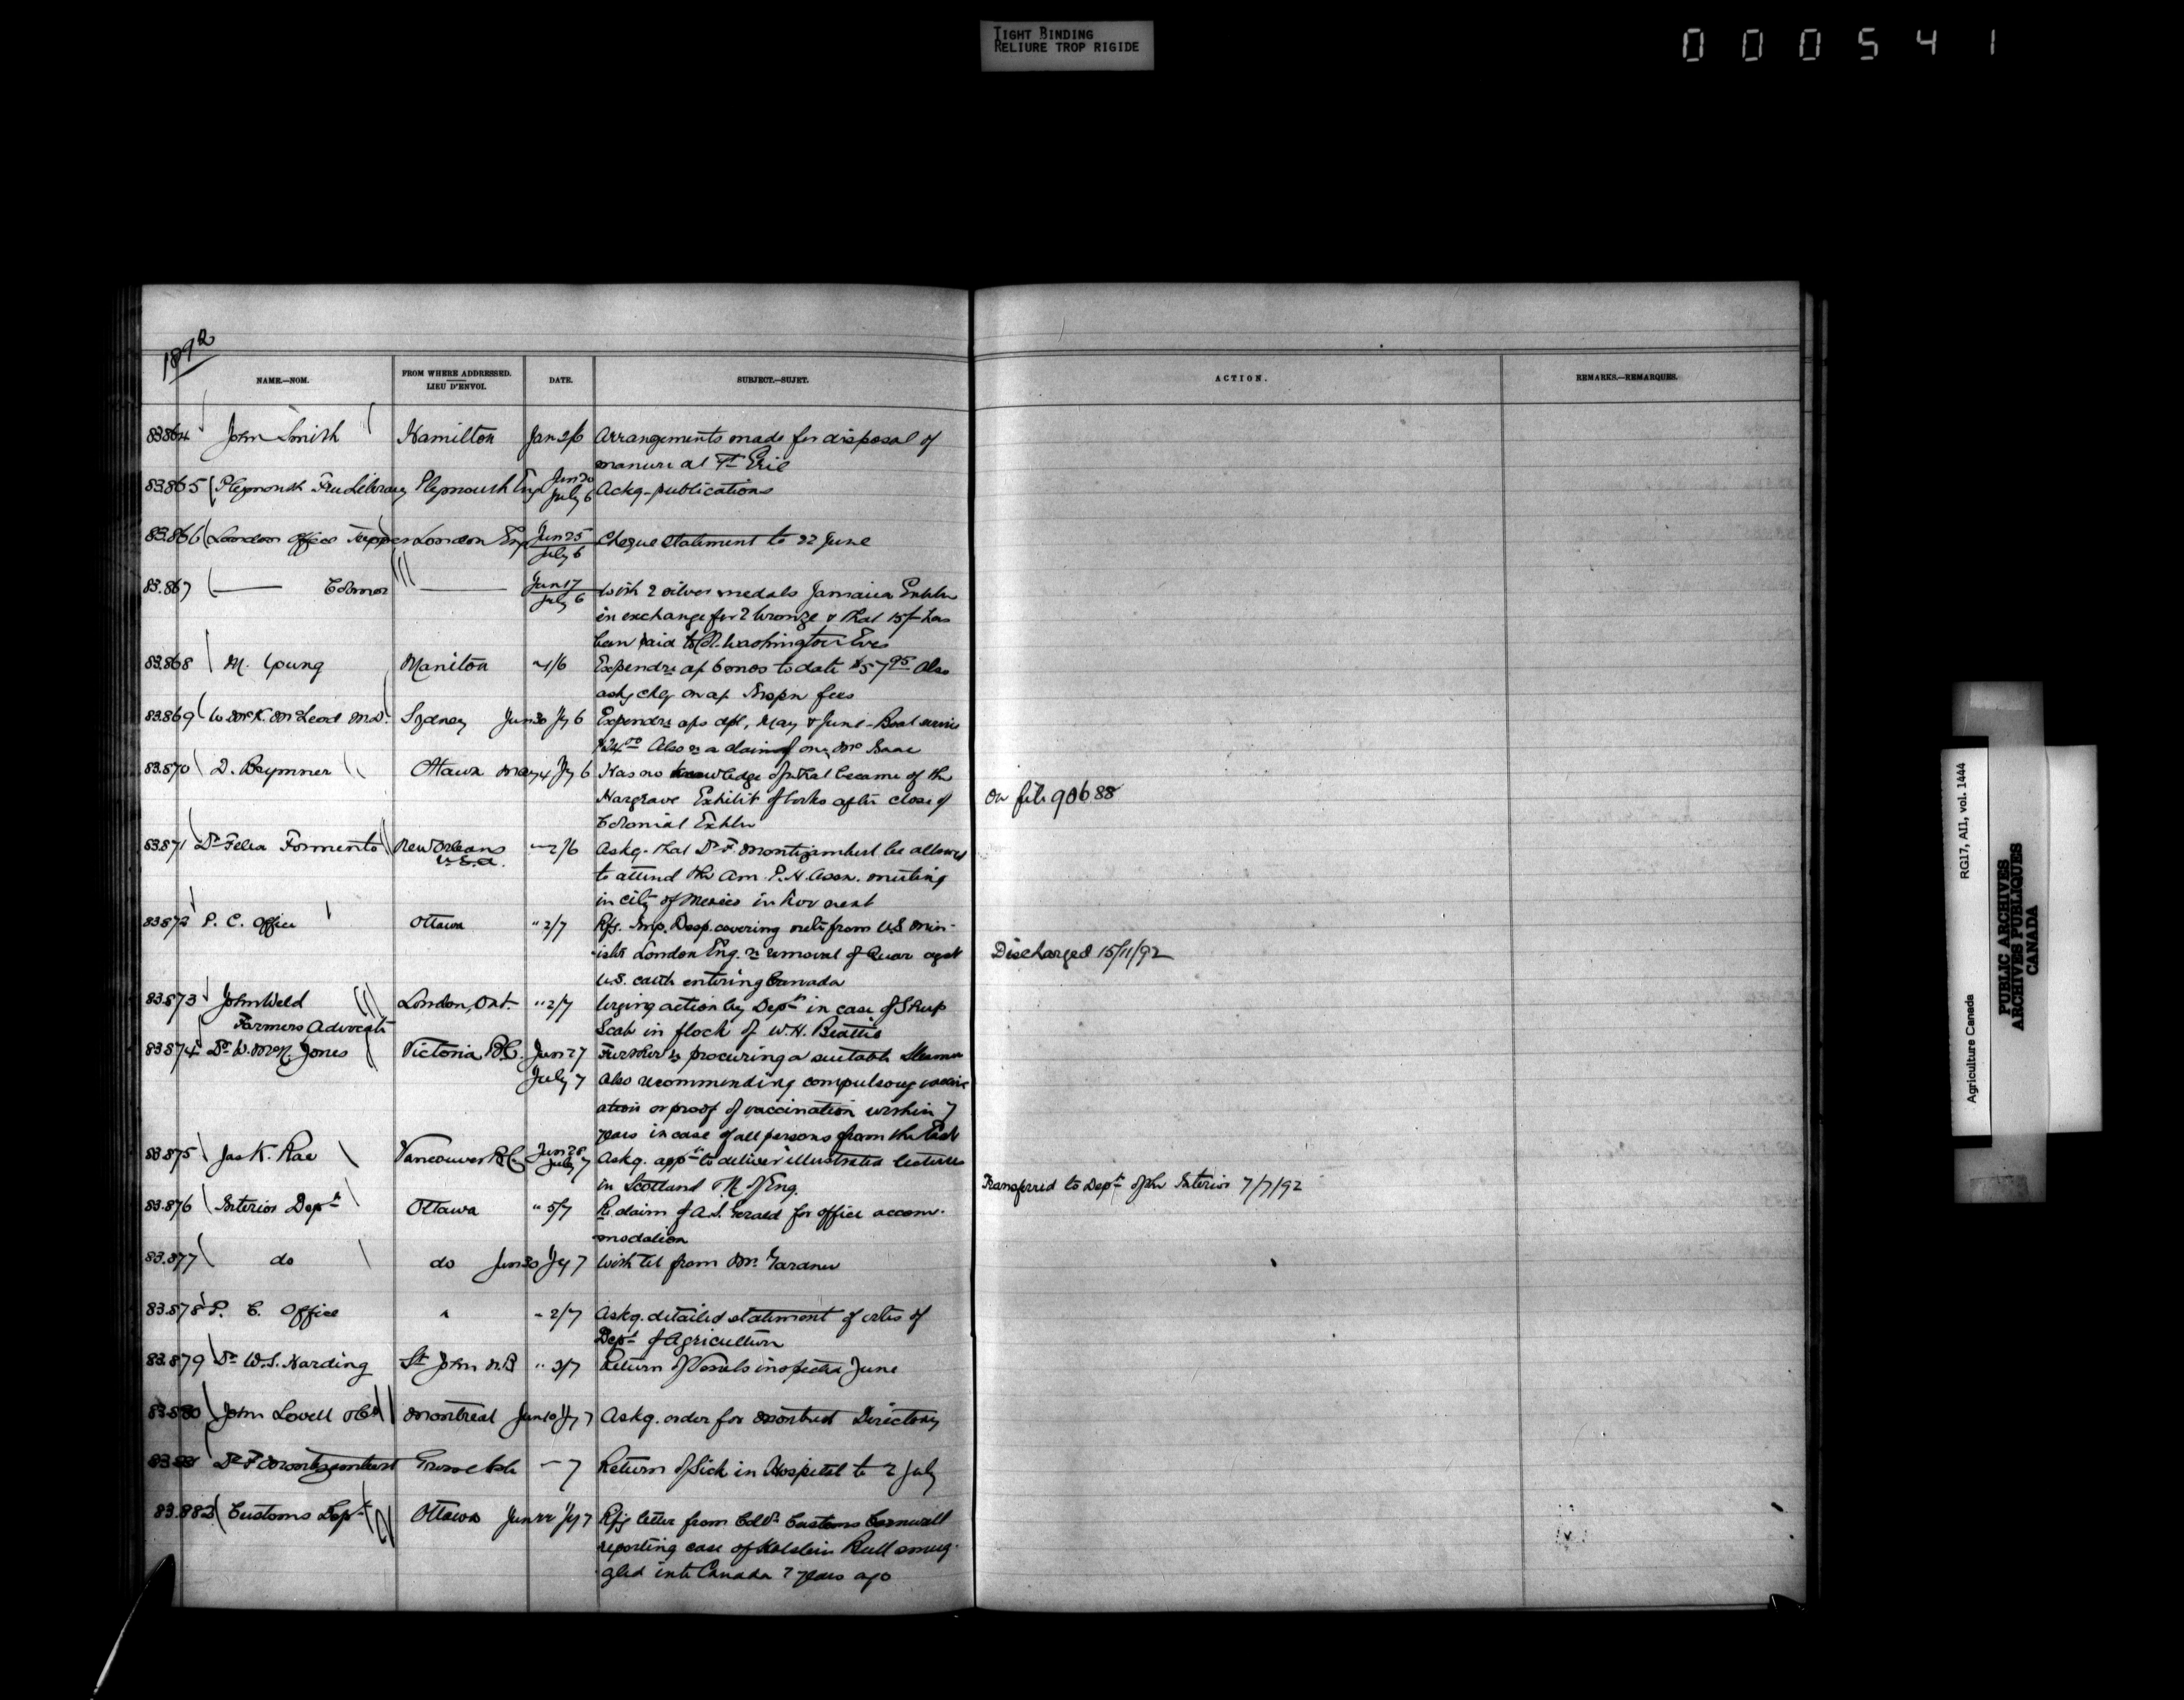 TIGHT BINDING
RELIURE TROP RIGIDE
000541
1892
NAME.—NOM.
FROM WHERE ADDRESSED.
LIEU D'ENVOI.
DATE.
SUBJECT.—SUJET.
ACTION.
REMARKS.—REMARQUES.
83.864 John Smith Hamilton Arrangements made for disposal of
manure at Ft Erie
83.865 Plymouth Free Library Plymouth Eng Jun 20 July 6 Ackg. publications
83.866 London Office London Eng Jun 25 July 6 Cheque statement to 22 June
83.867 Jun 17 July 6 With 2 silver medals Jamaica Exhbn
in exchange for 2 bronze & that 15/- has
been paid to Washington Eves
83.868 M. Young Manitou 1/6 Expendre 6 mos to date $57.95 Also
askg chq on fees
83.869 W. McK. McLeod M.D. Sydney Jun 30 Jy 6 Expendre May & June - Boat service
Also re a claim of one Mc Isaac
83.870 D. Brymner Ottawa May 4 Jy 6 Has no knowledge of what became of the
Hargrave Exhibit of after close of
Colonial Exhbn
On file 90688
83.871 Dr Felix Formento New Orleans U.S.A. 2/6 Askg. that Dr F. Montizambert be allowed
to attend the Am. P. H. Assn. meeting
in city of Mexico in Nov next
83.872 P. C. Office Ottawa " 2/7 Rfg. Imp. Desp. covering note from US Min-
ister London Eng. re removal of Quar agst
U.S. cattle entering Canada
Discharged 15/11/92
83.873 John Weld London, Ont. " 2/7 Urging action by Dept in case of Sheep
Farmers Advocate Scab in flock of W. H. Beattie
83.874 Dr W. McN. Jones Victoria B.C. Jun 27 Further re procuring a suitable steamer
July 7 Also recommending compulsory vaccin
ation or proof of vaccination within 7
years in case of all persons from the East
83.875 Jas K. Rae Vancouver B.C. Jun 28 July 7 Askg. appt to deliver illustrated lectures
in Scotland N. of Eng.
Transferred to Dept of the Interior 7/7/92
83.876 Interior Dept Ottawa " 5/7 Re claim of A. S. Gerald for office accom-
modation
83.877 do do Jun 30 Jy 7 With tel from Mr. Gardner
83.878 P. C. Office " " 2/7 Askg. detailed statement of votes of
Dept of Agriculture
83.879 Dr W. S. Harding St John N.B " 3/7 Return of Vessels inspected June
83.880 John Lovell Montreal Jun 10 Jy 7 Askg. order for Montreal Directory
Dr F Montizambert Grosse Isle 7 Return of Sick in Hospital to 2 July
83.882 Customs Dept Ottawa Jun 22 Jy 7 Rfg letter from Collr Customs Cornwall
reporting case of Holstein Bull smug-
gled into Canada 7 years ago
Agriculture Canada RG17, AII, vol. 1444
PUBLIC ARCHIVES
ARCHIVES PUBLIQUES
CANADA